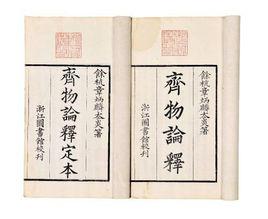 餘杭章炳麟太炎著
齊物論釋
浙江圖書館校刊
餘杭章炳麟太炎著
齊物論釋定本
浙江圖書館校刊